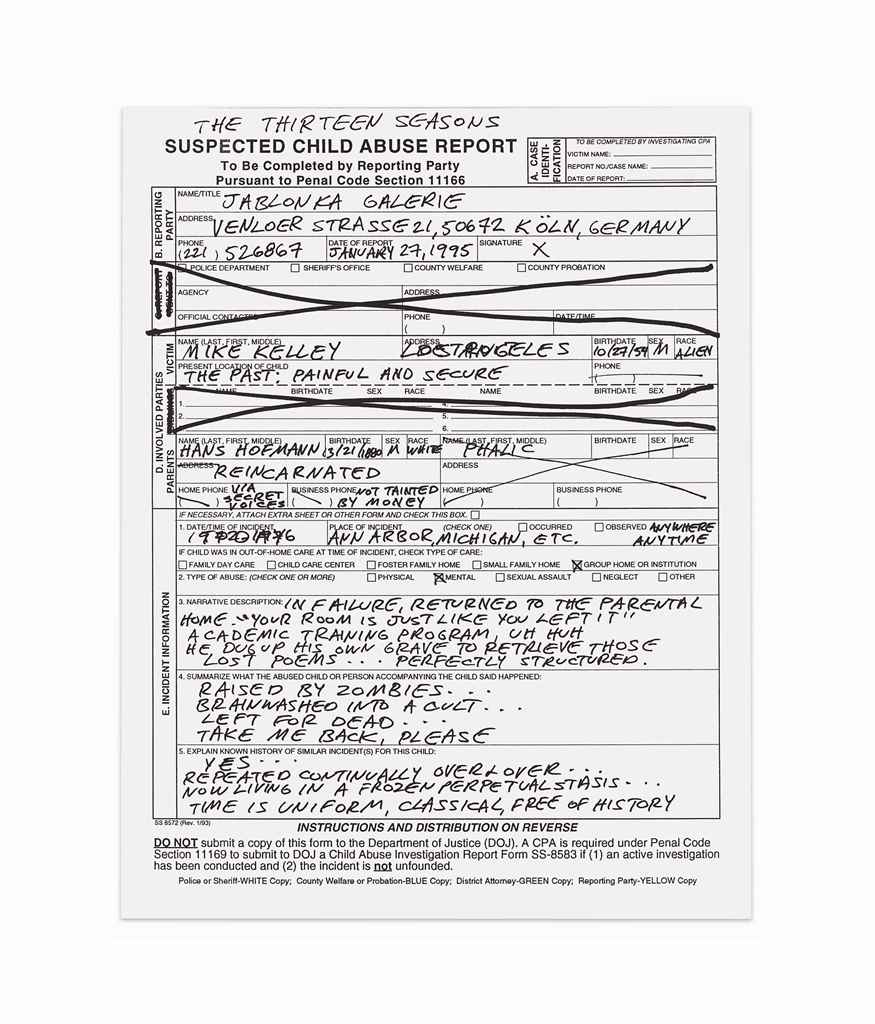 THE THIRTEEN SEASONS
SUSPECTED CHILD ABUSE REPORT
To Be Completed by Reporting Party
Pursuant to Penal Code Section 11166
A. CASE IDENTI-FICATION
TO BE COMPLETED BY INVESTIGATING CPA
VICTIM NAME:
REPORT NO./CASE NAME:
DATE OF REPORT:
B. REPORTING PARTY
NAME/TITLE JABLONKA GALERIE
ADDRESS VENLOER STRASSE 21, 50672 KÖLN, GERMANY
PHONE (221) 526867 DATE OF REPORT JANUARY 27, 1995 SIGNATURE X
POLICE DEPARTMENT SHERIFF'S OFFICE COUNTY WELFARE COUNTY PROBATION
AGENCY ADDRESS
OFFICIAL CONTACTED PHONE ( ) DATE/TIME
D. INVOLVED PARTIES
VICTIM
NAME (LAST, FIRST, MIDDLE) MIKE KELLEY ADDRESS LOS ANGELES BIRTHDATE 10/27/54 SEX M RACE ALIEN
PRESENT LOCATION OF CHILD THE PAST: PAINFUL AND SECURE PHONE ( )
NAME BIRTHDATE SEX RACE NAME BIRTHDATE SEX RACE
1. 4.
2. 5.
6.
PARENTS
NAME (LAST, FIRST, MIDDLE) HANS HOFMANN BIRTHDATE 3/21/1880 SEX M RACE WHITE NAME (LAST, FIRST, MIDDLE) PHALIC BIRTHDATE SEX RACE
ADDRESS REINCARNATED ADDRESS
HOME PHONE ( ) VIA SECRET VOICES BUSINESS PHONE ( ) NOT TAINTED BY MONEY HOME PHONE ( ) BUSINESS PHONE ( )
E. INCIDENT INFORMATION
IF NECESSARY, ATTACH EXTRA SHEET OR OTHER FORM AND CHECK THIS BOX.
1. DATE/TIME OF INCIDENT 1976 PLACE OF INCIDENT (CHECK ONE) OCCURRED OBSERVED ANYWHERE
ANN ARBOR, MICHIGAN, ETC. ANYTIME
IF CHILD WAS IN OUT-OF-HOME CARE AT TIME OF INCIDENT, CHECK TYPE OF CARE:
FAMILY DAY CARE CHILD CARE CENTER FOSTER FAMILY HOME SMALL FAMILY HOME GROUP HOME OR INSTITUTION
2. TYPE OF ABUSE: (CHECK ONE OR MORE) PHYSICAL MENTAL SEXUAL ASSAULT NEGLECT OTHER
3. NARRATIVE DESCRIPTION: IN FAILURE, RETURNED TO THE PARENTAL
HOME. "YOUR ROOM IS JUST LIKE YOU LEFT IT"
ACADEMIC TRAINING PROGRAM, UH HUH
HE DUG UP HIS OWN GRAVE TO RETRIEVE THOSE
LOST POEMS... PERFECTLY STRUCTURED.
4. SUMMARIZE WHAT THE ABUSED CHILD OR PERSON ACCOMPANYING THE CHILD SAID HAPPENED:
RAISED BY ZOMBIES...
BRAINWASHED INTO A CULT...
LEFT FOR DEAD...
TAKE ME BACK, PLEASE
5. EXPLAIN KNOWN HISTORY OF SIMILAR INCIDENT(S) FOR THIS CHILD:
YES...
REPEATED CONTINUALLY OVER & OVER...
NOW LIVING IN A FROZEN PERPETUAL STASIS...
TIME IS UNIFORM, CLASSICAL, FREE OF HISTORY
SS 8572 (Rev. 1/93)
INSTRUCTIONS AND DISTRIBUTION ON REVERSE
DO NOT submit a copy of this form to the Department of Justice (DOJ). A CPA is required under Penal Code
Section 11169 to submit to DOJ a Child Abuse Investigation Report Form SS-8583 if (1) an active investigation
has been conducted and (2) the incident is not unfounded.
Police or Sheriff-WHITE Copy; County Welfare or Probation-BLUE Copy; District Attorney-GREEN Copy; Reporting Party-YELLOW Copy